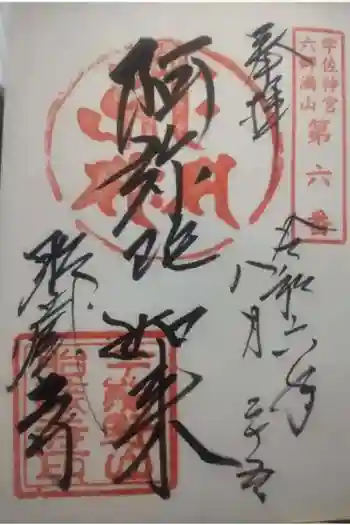 宇佐神宮
六郷満山
第六番
奉拝
令和六年
八月
二十五
阿弥陀如来
胎蔵寺